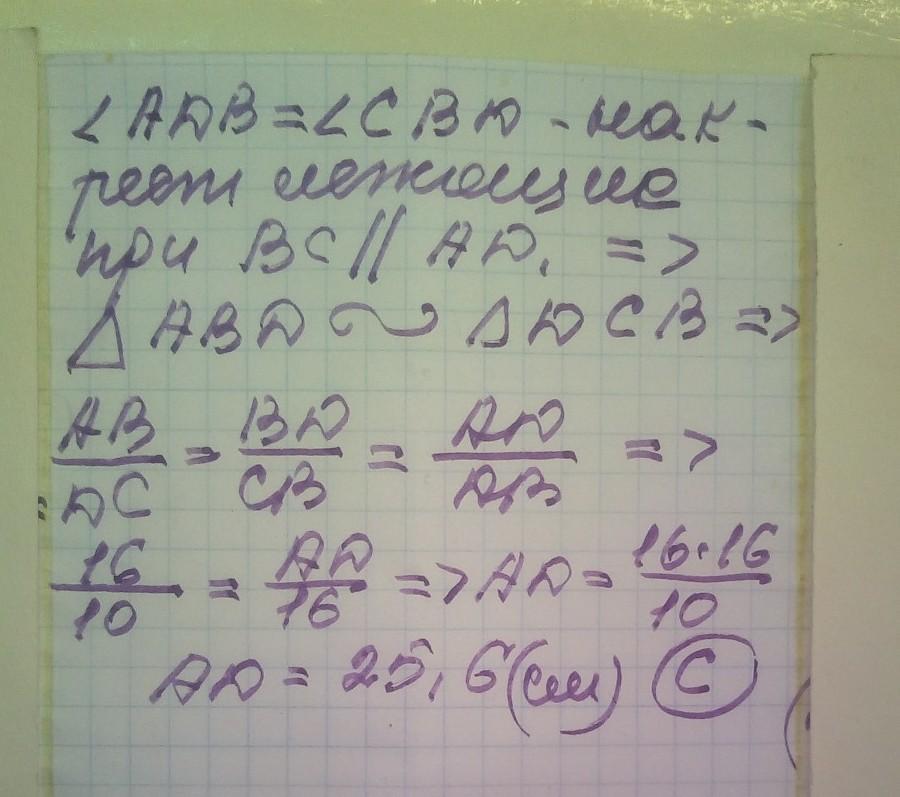 ∠ADB=∠CBD - нак-
рест лежащие
при BC || AD, =>
△ABD ∼ △DCB =>
AB/DC = BD/CB = AD/DB =>
16/10 = AD/16 => AD = 16·16/10
AD = 25,6(см) C